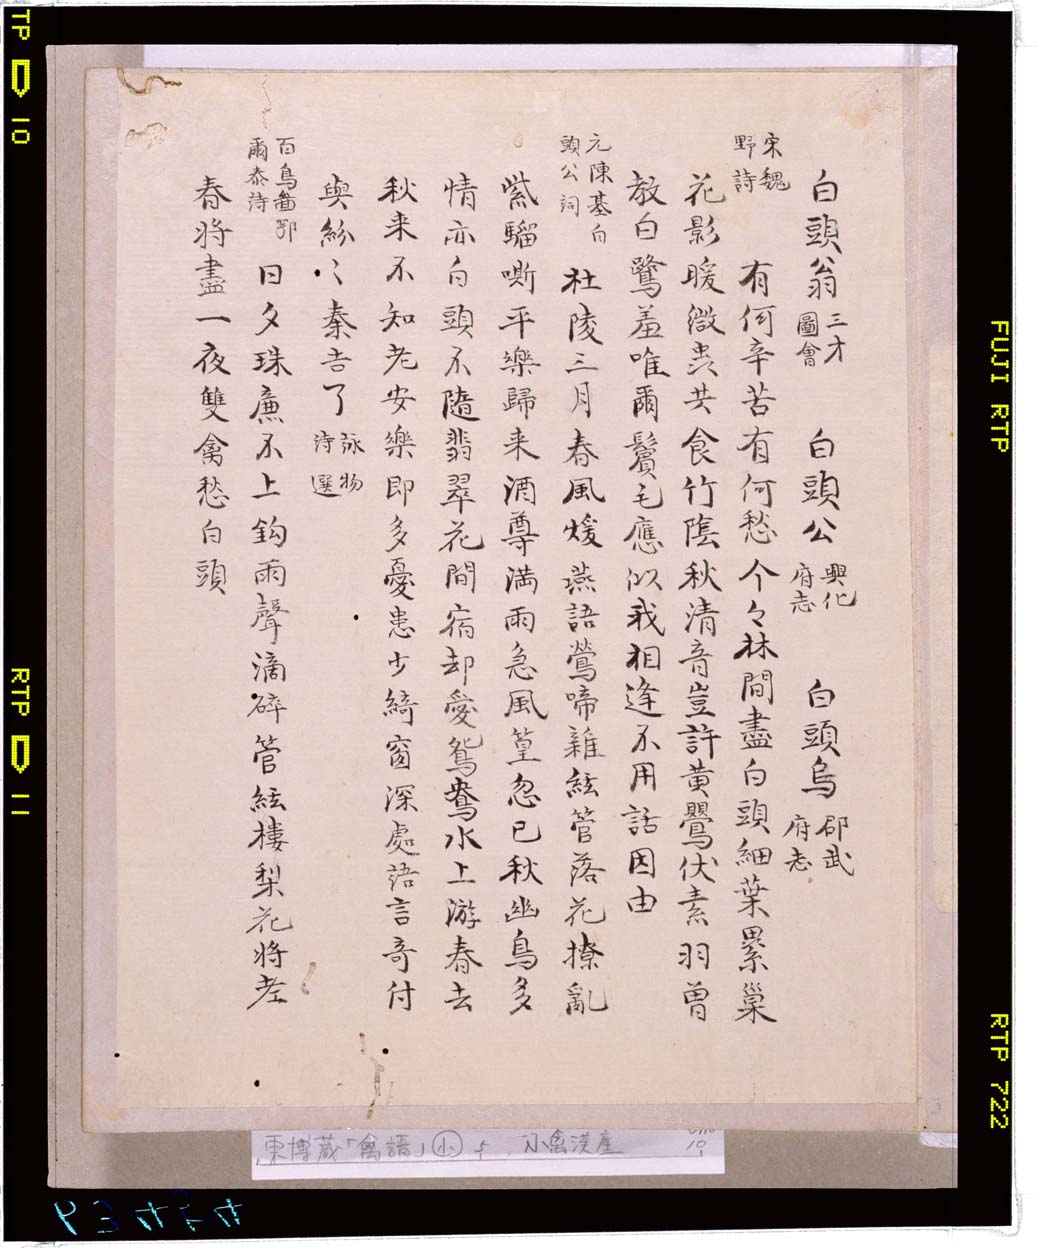 白頭翁 三才圖會 白頭公 興化府志 白頭烏 邵武府志
宋魏野詩 有何辛苦有何愁今々林間盡白頭細葉累巢
花影暖微虫共食竹陰秋清音豈許黄鸎伏素羽曽
教白鷺羞唯爾鬢毛應似我相逢不用話因由
元陳基白頭公詞 杜陵三月春風煖燕語鶯啼雜絃管落花撩亂
紫騮嘶平樂歸来酒尊満雨急風篁忽已秋幽鳥多
情亦白頭不隨翡翠花間宿却愛鴛鴦水上游春去
秋来不知老安樂即多憂患少綺窗深處語言奇付
與紛〻秦吉了 詠物詩選
百鳥啚鄂爾泰詩 日夕珠廉不上鈎雨聲滴碎管絃樓梨花将老
春将盡一夜雙禽愁白頭
東博蔵「禽譜」小 小禽漢産
TP 10
RTP 11
FUJI RTP
RTP 722